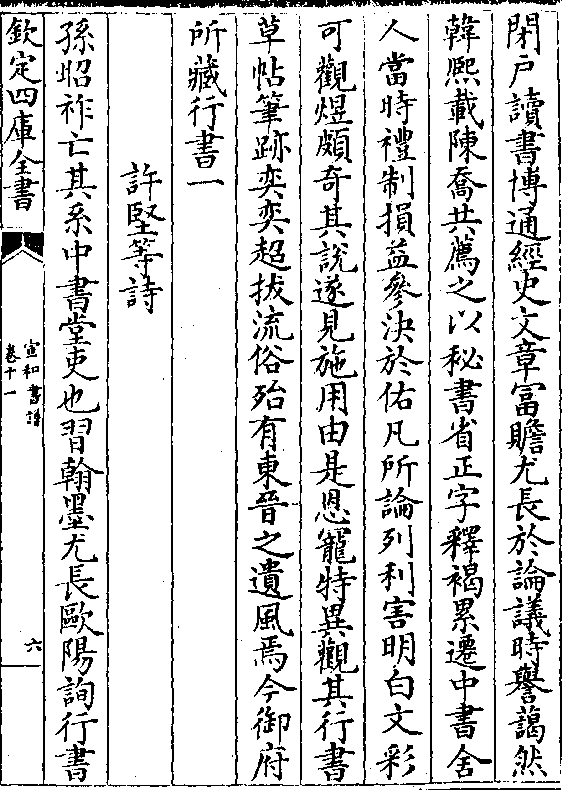 閉戸讀書博通經史文章富贍尤長於論議時譽藹然
韓熙載陳喬共薦之以秘書省正字釋褐累遷中書舍
人當時禮制損益參決於佑凡所論列利害明白文彩
可觀煜頗奇其說遂見施用由是恩寵特異觀其行書
草帖筆跡奕奕超拔流俗殆有東晉之遺風焉今御府
所藏行書一
許堅等詩
孫昭祚亡其系中書堂吏也習翰墨尤長歐陽詢行書
欽定四庫全書
宣和書譜
卷十一
六